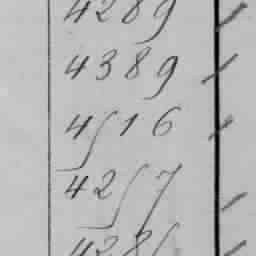 4289
4389
4516
4257